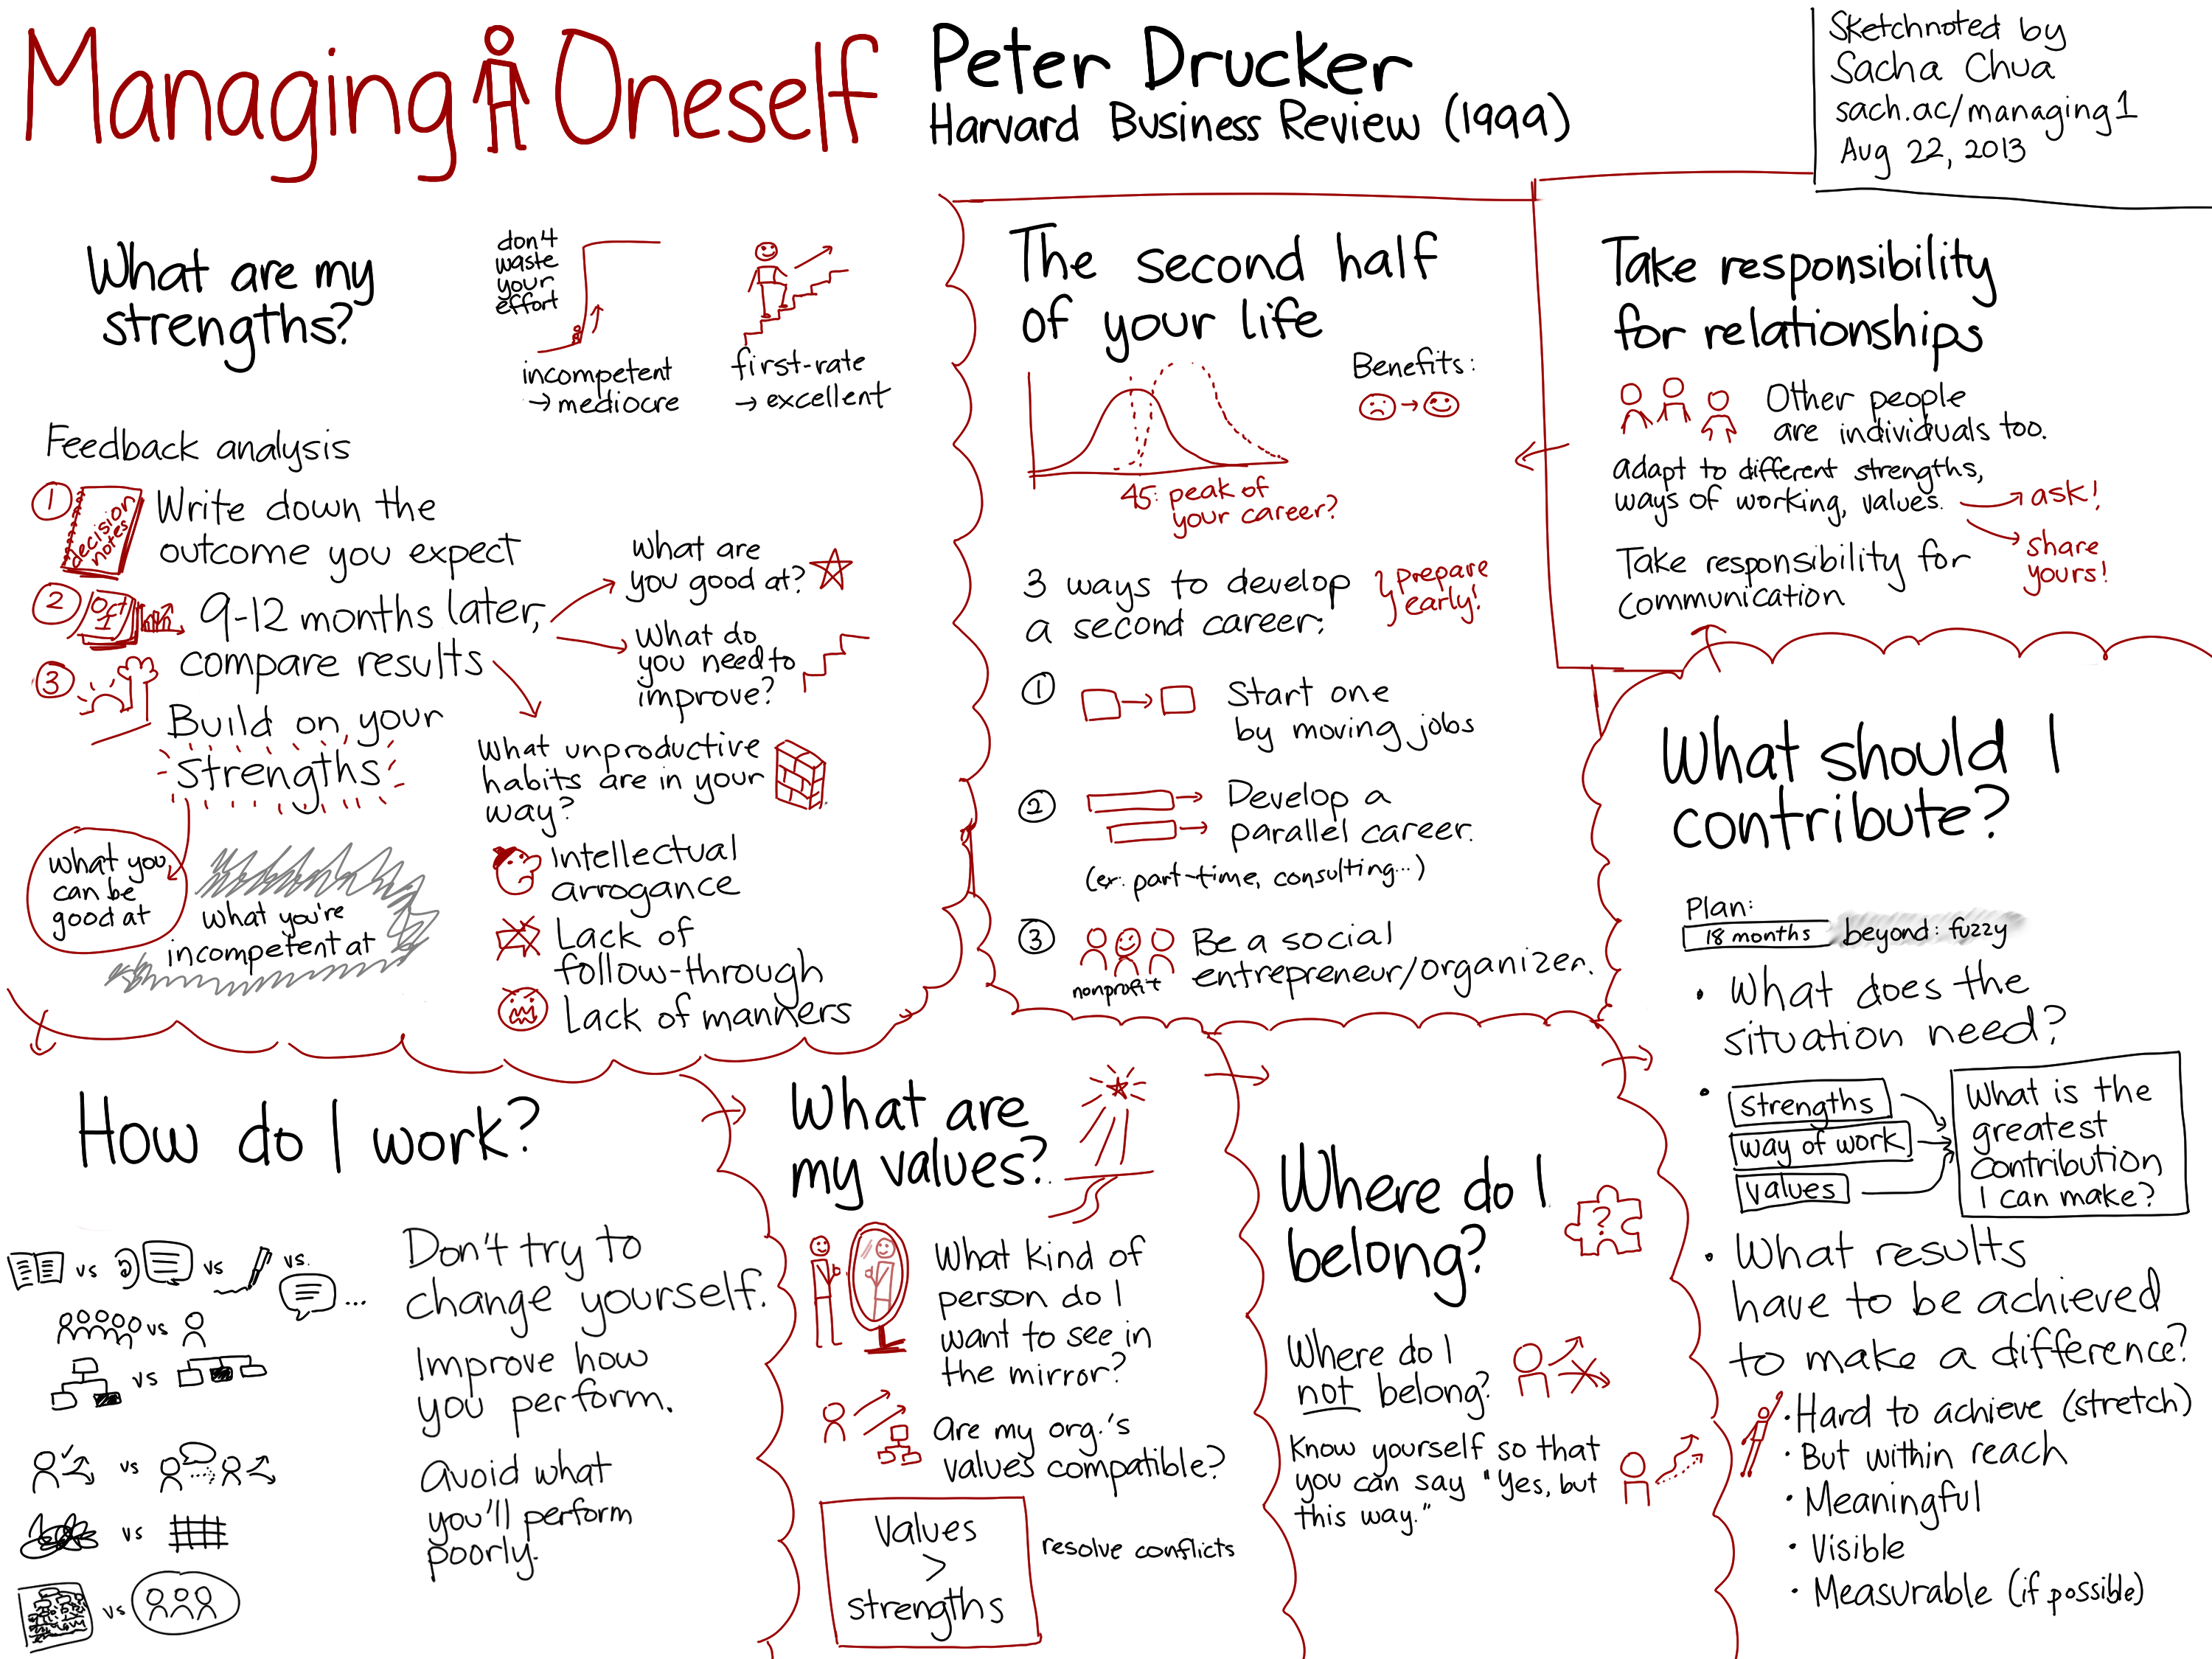 Managing Oneself
Peter Drucker
Harvard Business Review (1999)
Sketchnoted by
Sacha Chua
sach.ac/managing1
Aug 22, 2013
What are my
strengths?
don't
waste
your
effort
incompetent
→ mediocre
first-rate
→ excellent
Feedback analysis
1
decision
notes
Write down the
outcome you expect
2
Oct
1
9-12 months later,
compare results
3
Build on your
strengths
What are
you good at?
What do
you need to
improve?
What unproductive
habits are in your
way?
Intellectual
arrogance
Lack of
follow-through
Lack of manners
what you
can be
good at
what you're
incompetent at
How do I work?
vs
vs
vs.
...
vs
vs
vs
vs
vs
Don't try to
change yourself.
Improve how
you perform.
Avoid what
you'll perform
poorly.
What are
my values?
What kind of
person do I
want to see in
the mirror?
Are my org.'s
values compatible?
Values
>
strengths
resolve conflicts
Where do I
belong?
?
Where do I
not belong?
Know yourself so that
you can say "Yes, but
this way."
What should I
contribute?
Plan:
18 months
beyond: fuzzy
• What does the
situation need?
• strengths
way of work
values
What is the
greatest
contribution
I can make?
• What results
have to be achieved
to make a difference?
• Hard to achieve (stretch)
• But within reach
• Meaningful
• Visible
• Measurable (if possible)
Take responsibility
for relationships
Other people
are individuals too.
adapt to different strengths,
ways of working, values.
→ ask!
share
yours!
Take responsibility for
communication
The second half
of your life
Benefits:
45: peak of
your career?
3 ways to develop
a second career:
prepare
early!
1
Start one
by moving jobs
2
Develop a
parallel career.
(ex. part-time, consulting...)
3
nonprofit
Be a social
entrepreneur/organizer.